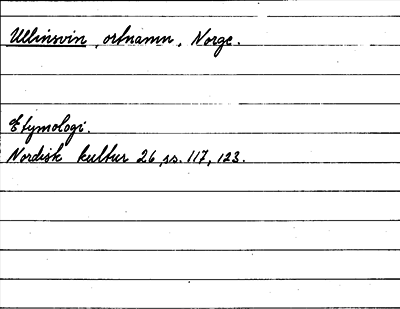 Ullinsvin, ortnamn, Norge.
Etymologi.
Nordisk kultur 26, ss. 117, 123.